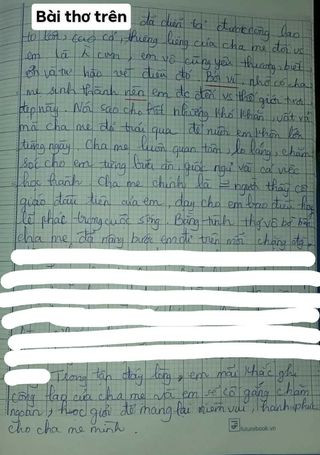 Bài thơ trên
đã diễn tả được công lao
to lớn, cao cả, thiêng liêng của cha mẹ đối vs
em là vô cùng yêu thương, biết
ơn và tự hào về điều đó. Bởi vì, nhờ có cha
mẹ sinh thành nên em đc đến vs thế giới tươi
đẹp này. Nói sao cho hết những khó khăn, vất vả
mà cha mẹ đã trải qua để nuôi em khôn lớn
từng ngày. Cha mẹ luôn quan tâm, lo lắng, chăm
sóc cho em từng bữa ăn, giấc ngủ và cả việc
học hành. Cha mẹ chính là người thầy cô
giáo đầu tiên của em, dạy cho em bao điều hay
lẽ phải trong cuộc sống. Bằng tình thg vô bờ bến
cha mẹ, đã nâng bước em đi trên mỗi chặng đg
Trong tận đáy lòng, em mãi khắc ghi
công lao của cha mẹ và em sẽ cố gắng chăm
ngoan, học giỏi để mang lại niềm vui, hạnh phúc
cho cha mẹ mình.
futurebook.vn